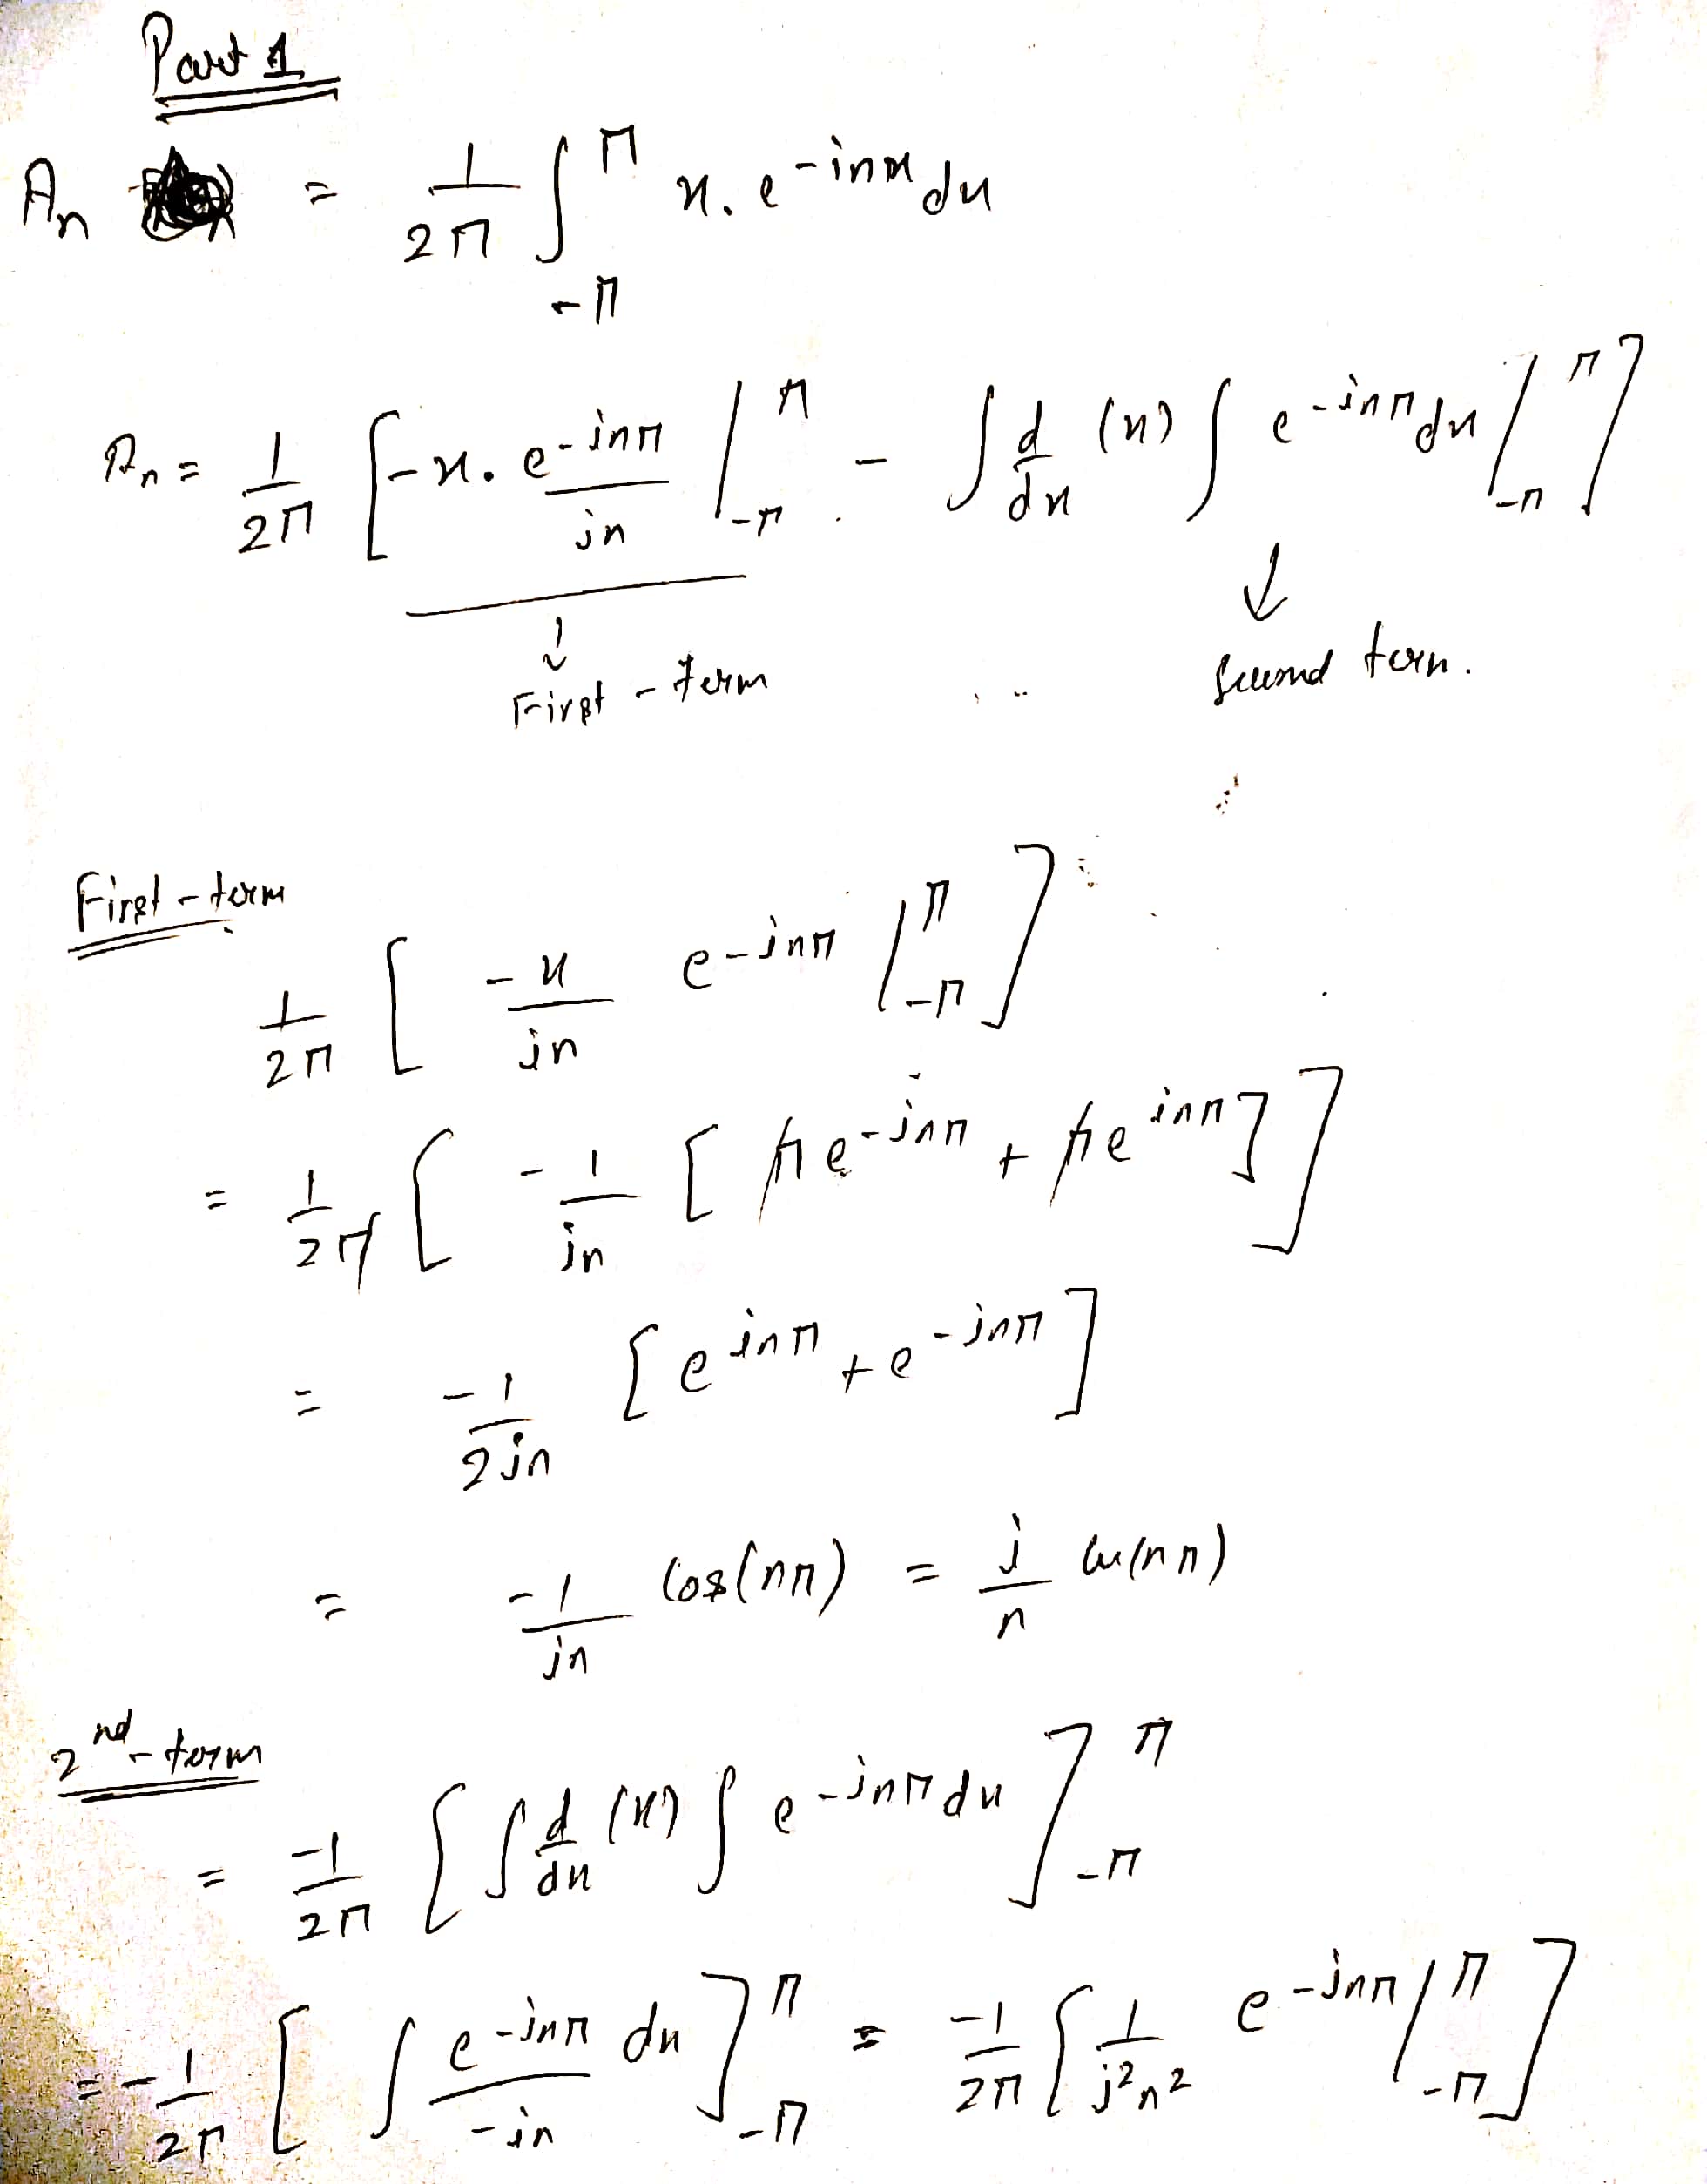 Part 1
An = 1/2π ∫_{-π}^{π} x. e^{-inx} dx
An = 1/2π [ -x. e^{-jnπ}/jn |_{-π}^{π} - ∫ d/dx (x) ∫ e^{-jnπ} dx |_{-π}^{π} ]
First - term
Second term.
First - term
1/2π [ -x/jn e^{-jnπ} |_{-π}^{π} ]
= 1/2π [ -1/jn [ πe^{-jnπ} + πe^{jnπ} ] ]
= -1/2jn [ e^{jnπ} + e^{-jnπ} ]
= -1/jn Cos(nπ) = j/n cos(nπ)
2nd - term
= -1/2π [ ∫ d/dx (x) ∫ e^{-jnπ} dx ]_{-π}^{π}
= -1/2π [ ∫ e^{-jnπ}/-jn dx ]_{-π}^{π} = -1/2π [ 1/j²n² e^{-jnπ} |_{-π}^{π} ]